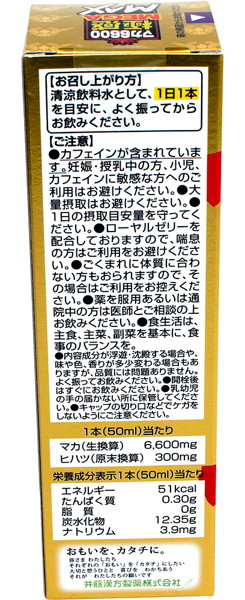 マカ6600
極盛
MEGA
MAX
【お召し上がり方】
清涼飲料水として、1日1本
を目安に、よく振ってから
お飲みください。
【ご注意】
●カフェインが含まれていま
す。妊娠・授乳中の方、小児、
カフェインに敏感な方へのご
利用はお避けください。●大
量摂取はお避けください。●
1日の摂取目安量を守ってく
ださい。●ローヤルゼリーを
配合しておりますので、喘息
の方はご利用をお避けくださ
い。●ごくまれに体質に合わ
ない方もおられますので、そ
の場合はご利用をお控えくだ
さい。●薬を服用あるいは通
院中の方は医師とご相談の上
お飲みください。●食生活は、
主食、主菜、副菜を基本に、食
事のバランスを。
●内容成分が浮遊・沈殿する場合や、
味や色、香りが多少変わる場合もあり
ますが、品質には問題ありません。
よく振ってお飲みください。●開栓後
はすぐにお飲みください。●乳幼児
の手の届かない所に保管してくださ
い。●キャップの切り口などでケガを
しないようにご注意ください。
1本(50ml)当たり
マカ(生換算) 6,600mg
ヒハツ(原末換算) 300mg
栄養成分表示1本(50ml)当たり
エネルギー 51kcal
たんぱく質 0.30g
脂質 0g
炭水化物 12.35g
ナトリウム 3.9mg
おもいを、カタチに。
皆さま わたしたち
それぞれの「おもい」を「カタチ」にしたい
大切に想うひとと 喜びを わかちあう
それが わたしたちの願いです
井藤漢方製薬株式会社